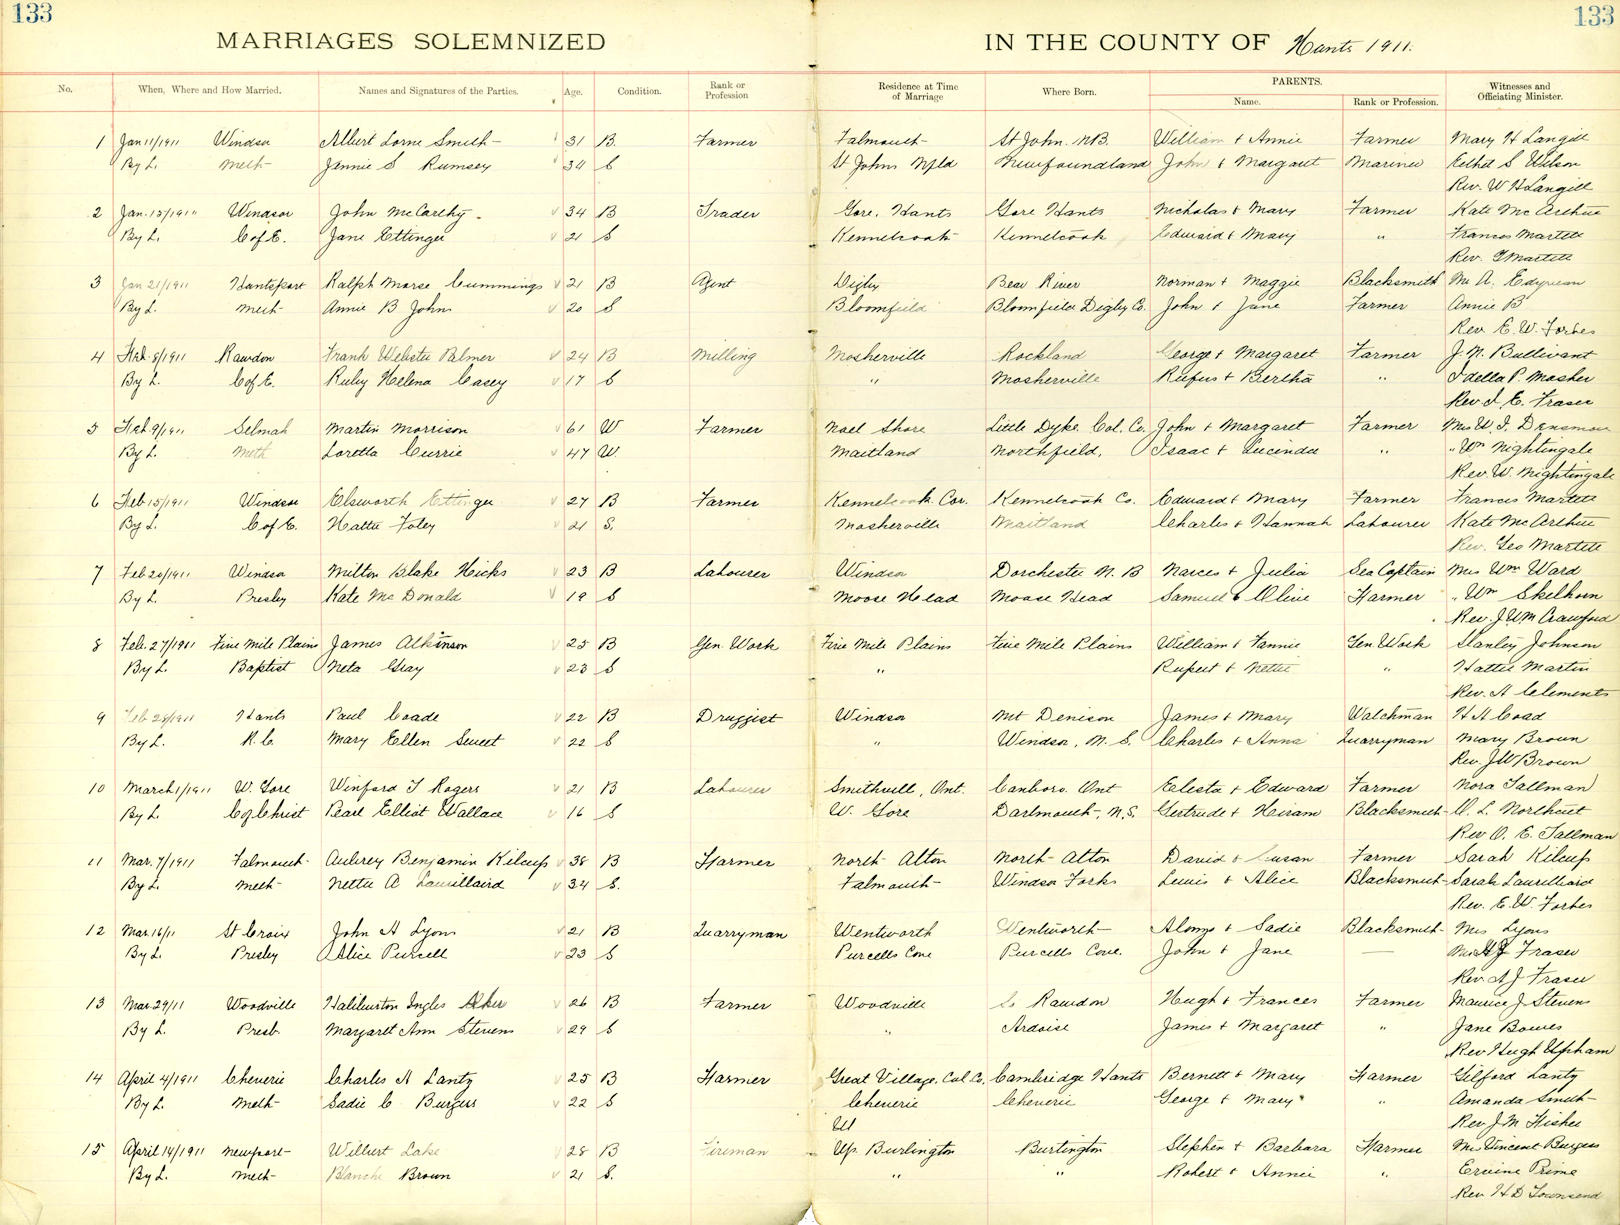 133 133
MARRIAGES SOLEMNIZED IN THE COUNTY OF Hants 1911.
No. When, Where and How Married. Names and Signatures of the Parties. Age. Condition. Rank or Profession Residence at Time of Marriage Where Born. PARENTS. Name. Rank or Profession. Witnesses and Officiating Minister.
1 Jan 11/1911 Windsor Albert Lorne Smith 31 B. Farmer Falmouth St John. N.B. William + Annie Farmer Mary H Langill
By L. Meth Jennie S Rumsey 34 S St Johns Nfld Newfoundland John + Margaret Mariner Ethel S Wilson
Rev. W H Langill
2 Jan. 12/1911 Windsor John McCarthy 34 B Trader Gore, Hants Gore Hants Nicholas + Mary Farmer Kate McArthur
By L. C of E. Jane Ettinger 21 S Kennetcook Kennetcook Edward + Mary " Frances Martell
Rev. G Martell
3 Jan 21/1911 Hantsport Ralph Morse Cummings 21 B Agent Digby Bear River Norman + Maggie Blacksmith M. A.
By L. Meth Annie B Johns 20 S Bloomfield Bloomfield Digby Co. John + Jane Farmer Annie B
Rev. E. W. Forbes
4 Feb. 8/1911 Rawdon Frank Webster Palmer 24 B Milling Mosherville Rockland George + Margaret Farmer J. N. Bullivant
By L. C of E. Ruby Helena Casey 17 S " Mosherville Rufus + Bertha " Idella P. Mosher
Rev J. E. Fraser
5 Feb 9/1911 Selmah Martin Morrison 61 W Farmer Noel Shore Little Dyke Col. Co. John + Margaret Farmer Mrs W. I. Densmore
By L. Meth Loretta Currie 47 W Maitland Northfield, Isaac + Lucinda " " Wm Nightingale
Rev. W. Nightingale
6 Feb 15/1911 Windsor Elsworth Ettinger 27 B Farmer Kennetcook Cor. Kennetcook Co. Edward + Mary Farmer Frances Martell
By L. C of E. Hattie Foley 21 S. Mosherville Maitland Charles + Hannah Labourer Kate McArthur
Rev. Geo Martell
7 Feb 20/1911 Windsor Milton Blake Hicks 23 B Labourer Windsor Dorchester N. B Narces + Julia Sea Captain Mrs Wm Ward
By L. Presby Kate McDonald 19 S Moose Head Moose Head Samuel & Olive Farmer " Wm Skelhorn
Rev. J Wm Crawford
8 Feb. 27/1911 Five Mile Plains James Atkinson 25 B Gen. Work Five Mile Plains Five Mile Plains William + Fannie Gen. Work Stanley Johnson
By L. Baptist Neta Gray 23 S " Rupert + Nettie " Hattie Martin
Rev. A Clements
9 Feb 28/1911 Hants Paul Coade 22 B Druggist Windsor Mt Denison James + Mary Watchman H A Coad
By L. R. C. Mary Ellen Sweet 22 S " Windsor, N. S. Charles + Anna Quarryman Mary Brown
Rev. J W Brown
10 March 1/1911 W. Gore Winford T Rogers 21 B Labourer Smithvill, Ont. Canboro. Ont Elesta + Edward Farmer Nora Tallman
By L. C of Christ Pearl Elliot Wallace 16 S W. Gore Dartmouth, N.S. Gertrude + Hiram Blacksmith O. L. Northcut
Rev O. E. Tallman
11 Mar. 7/1911 Falmouth Aubrey Benjamin Kilcup 38 B Farmer North Alton North Alton David + Susan Farmer Sarah Kilcup
By L. Meth Nettie A Laurillaird 34 S. Falmouth Windsor Forks Lewis + Alice Blacksmith Sarah Laurilliard
Rev. E. W. Forbes
12 Mar. 16/11 St Croix John H Lyons 21 B Quarryman Wentworth Wentworth Alonzo + Sadie Blacksmith Mrs Lyons
By L. Presby Alice Purcell 23 S Purcells Cove Purcells Cove. John + Jane — Mrs A J Fraser
Rev. A J Fraser
13 Mar. 29/11 Woodville Haliburton Ingles Aker 26 B Farmer Woodville So Rawdon Hugh + Frances Farmer Maurice J Stevens
By L. Presb. Margaret Ann Stevens 29 S " Ardoise James + Margaret " Jane Bowes
Rev Hugh Upham
14 April 4/1911 Cheverie Charles A Lantz 25 B Farmer Great Village, Col. Co. Cambridge Hants Bernett + Mary Farmer Gilford Lantz
By L. Meth Sadie C Burgess 22 S Cheverie Cheverie George + Mary " Amanda Smith
Rev J. M Fisher
15 April 14/1911 Newport Wilbert Lake 28 B Fireman Up. Burlington Burlington Stephen + Barbara Farmer Mrs Vincent Burgess
By L. Meth Blanche Brown 21 S. " " Robert + Annie " Ervine Prime
Rev H D Townsend